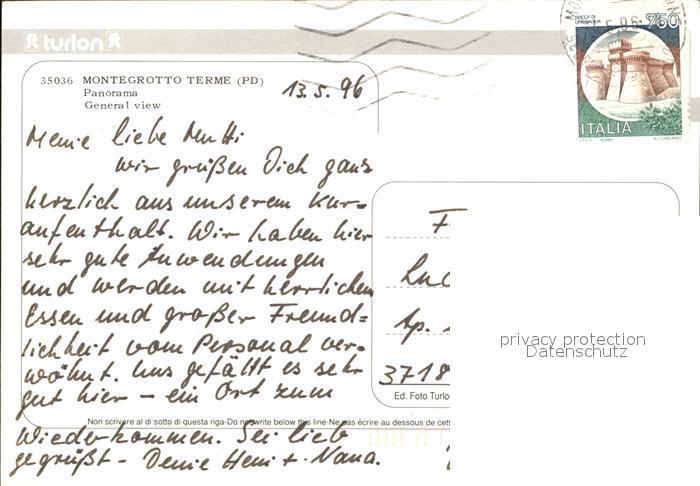 turlon
35036 MONTEGROTTO TERME (PD)
Panorama
General view
13.5.96
Meine liebe Mutti
wir grüßen Dich ganz
herzlich aus unserem Kur=
aufenthalt. Wir haben hier
sehr gute Anwendungen
und werden mit herrlichem
Essen und großer Freund=
lichkeit vom Personal ver=
wöhnt. Uns gefällt es sehr
gut hier – ein Ort zum
Wiederkommen. Sei lieb
gegrüßt – Deine Heni + Nana.
Non scrivere al di sotto di questa riga-Do not write below this line-Ne pas écrire au dessous de cett
ROCCA DI URBISAGLIA
750
ITALIA
I.P.Z.S. - ROMA
F
Luc
Ap.
3718
Ed. Foto Turlo
privacy protection
Datenschutz